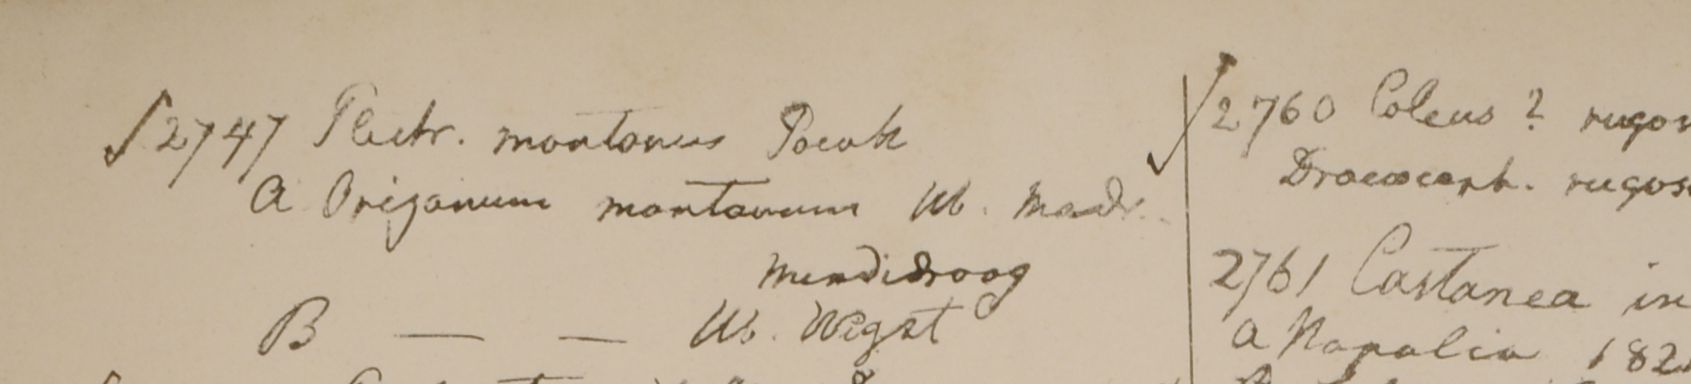 2747 Plectr. montanus
A Origanum montanum Hb. Madr.
Mundidroog
B — — Hb. Wight
2760 Coleus ? rugos
Dracoceph. rugos
2761 Castanea in
A Napalia 182